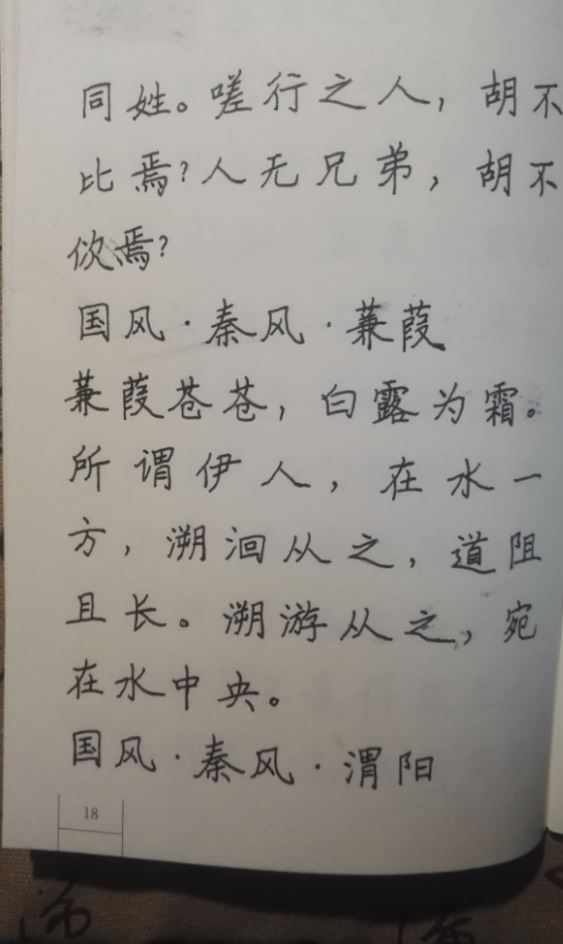 同姓。嗟行之人，胡不
比焉？人无兄弟，胡不
佽焉？
国风·秦风·蒹葭
蒹葭苍苍，白露为霜。
所谓伊人，在水一
方，溯洄从之，道阻
且长。溯游从之，宛
在水中央。
国风·秦风·渭阳
18